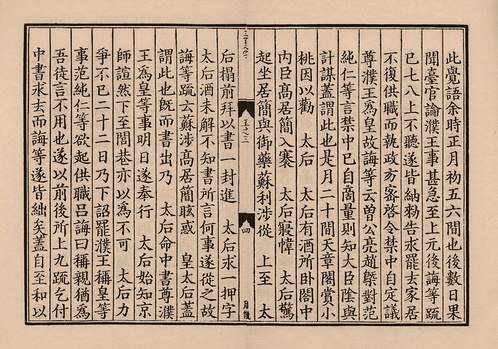 此覺語余時正月初五六間也後數日果
聞臺官論濮王事甚急至上元後誨等䟽
已七八上不聽遂皆納勑告求罷去家居
不復供職而執政方畨啓令禁中自定議
尊濮王為皇故誨等云曽公亮趙槩對范
純仁等言禁中已自商量則知大臣隂與
計謀蓋謂此也是月二十間天章閣賞小
桃因以勸　太后　太后有酒所卧閤中
内臣髙居簡入褰　太后寢幃　太后驚
起坐居簡與御藥蘇利涉從　上至　太
四
后榻前拜以書一封進　太后求一押字
太后酒未解不知書所言何事遂從之故
誨等䟽云蘇涉髙居簡眩惑　皇太后蓋
謂此也旣而書出乃　太后命中書尊濮
王為皇等事明日遂奉行　太后始知京
師諠然下至閭巷亦以為不可　太后力
爭不已二十二日乃下詔罷濮王稱皇等
事范純仁等欲起供職吕誨曰稱親猶為
吾徒言不用也遂以前後所上九䟽乞付
中書求去而誨等遂皆絀矣蓋自至和以